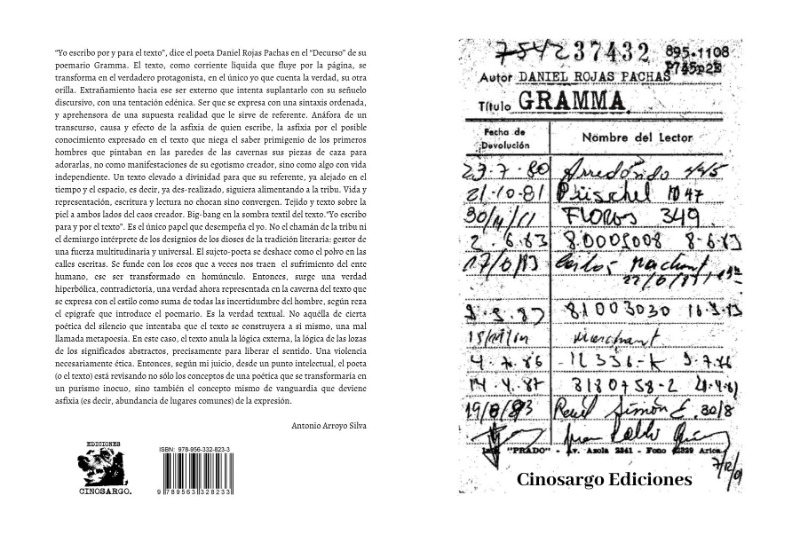 "Yo escribo por y para el texto", dice el poeta Daniel Rojas Pachas en el "Decurso" de su
poemario Gramma. El texto, como corriente líquida que fluye por la página, se
transforma en el verdadero protagonista, en el único yo que cuenta la verdad, su otra
orilla. Extrañamiento hacia ese ser externo que intenta suplantarlo con su señuelo
discursivo, con una tentación edénica. Ser que se expresa con una sintaxis ordenada,
y aprehensora de una supuesta realidad que le sirve de referente. Anáfora de un
transcurso, causa y efecto de la asfixia de quien escribe, la asfixia por el posible
conocimiento expresado en el texto que niega el saber primigenio de los primeros
hombres que pintaban en las paredes de las cavernas sus piezas de caza para
adorarlas, no como manifestaciones de su egotismo creador, sino como algo con vida
independiente. Un texto elevado a divinidad para que su referente, ya alejado en el
tiempo y el espacio, es decir, ya des-realizado, siguiera alimentando a la tribu. Vida y
representación, escritura y lectura no chocan sino convergen. Tejido y texto sobre la
piel a ambos lados del caos creador. Big-bang en la sombra textil del texto."Yo escribo
para y por el texto". Es el único papel que desempeña el yo. No el chamán de la tribu ni
el demiurgo intérprete de los designios de los dioses de la tradición literaria: gestor de
una fuerza multitudinaria y universal. El sujeto-poeta se deshace como el polvo en las
calles escritas. Se funde con los ecos que a veces nos traen el sufrimiento del ente
humano, ese ser transformado en homúnculo. Entonces, surge una verdad
hiperbólica, contradictoria, una verdad ahora representada en la caverna del texto que
se expresa con el estilo como suma de todas las incertidumbre del hombre, según reza
el epígrafe que introduce el poemario. Es la verdad textual. No aquélla de cierta
poética del silencio que intentaba que el texto se construyera a sí mismo, una mal
llamada metapoesía. En este caso, el texto anula la lógica externa, la lógica de las lozas
de los significados abstractos, precisamente para liberar el sentido. Una violencia
necesariamente ética. Entonces, según mi juicio, desde un punto intelectual, el poeta
(o el texto) está revisando no sólo los conceptos de una poética que se transformaría en
un purismo inocuo, sino también el concepto mismo de vanguardia que deviene
asfixia (es decir, abundancia de lugares comunes) de la expresión.
Antonio Arroyo Silva
EDICIONES
CINOSARGO.
ISBN: 978-956-332-823-3
9789563328233
237432 895-1108
Autor DANIEL ROJAS PACHAS
Título GRAMMA
Fecha de Devolución Nombre del Lector
23-7-80 Arredondo
21-10-81 1047
FLORES 349
2.6.83 80005008 8-6-83
Carlos
81003030
Marchant
4-7-86
14.4.87 3180758-2
19/8/83 Raúl Simón E. 30/8
Juan Pablo
"PRADO" - Av. Azola 2341 - Fono Arica
Cinosargo Ediciones